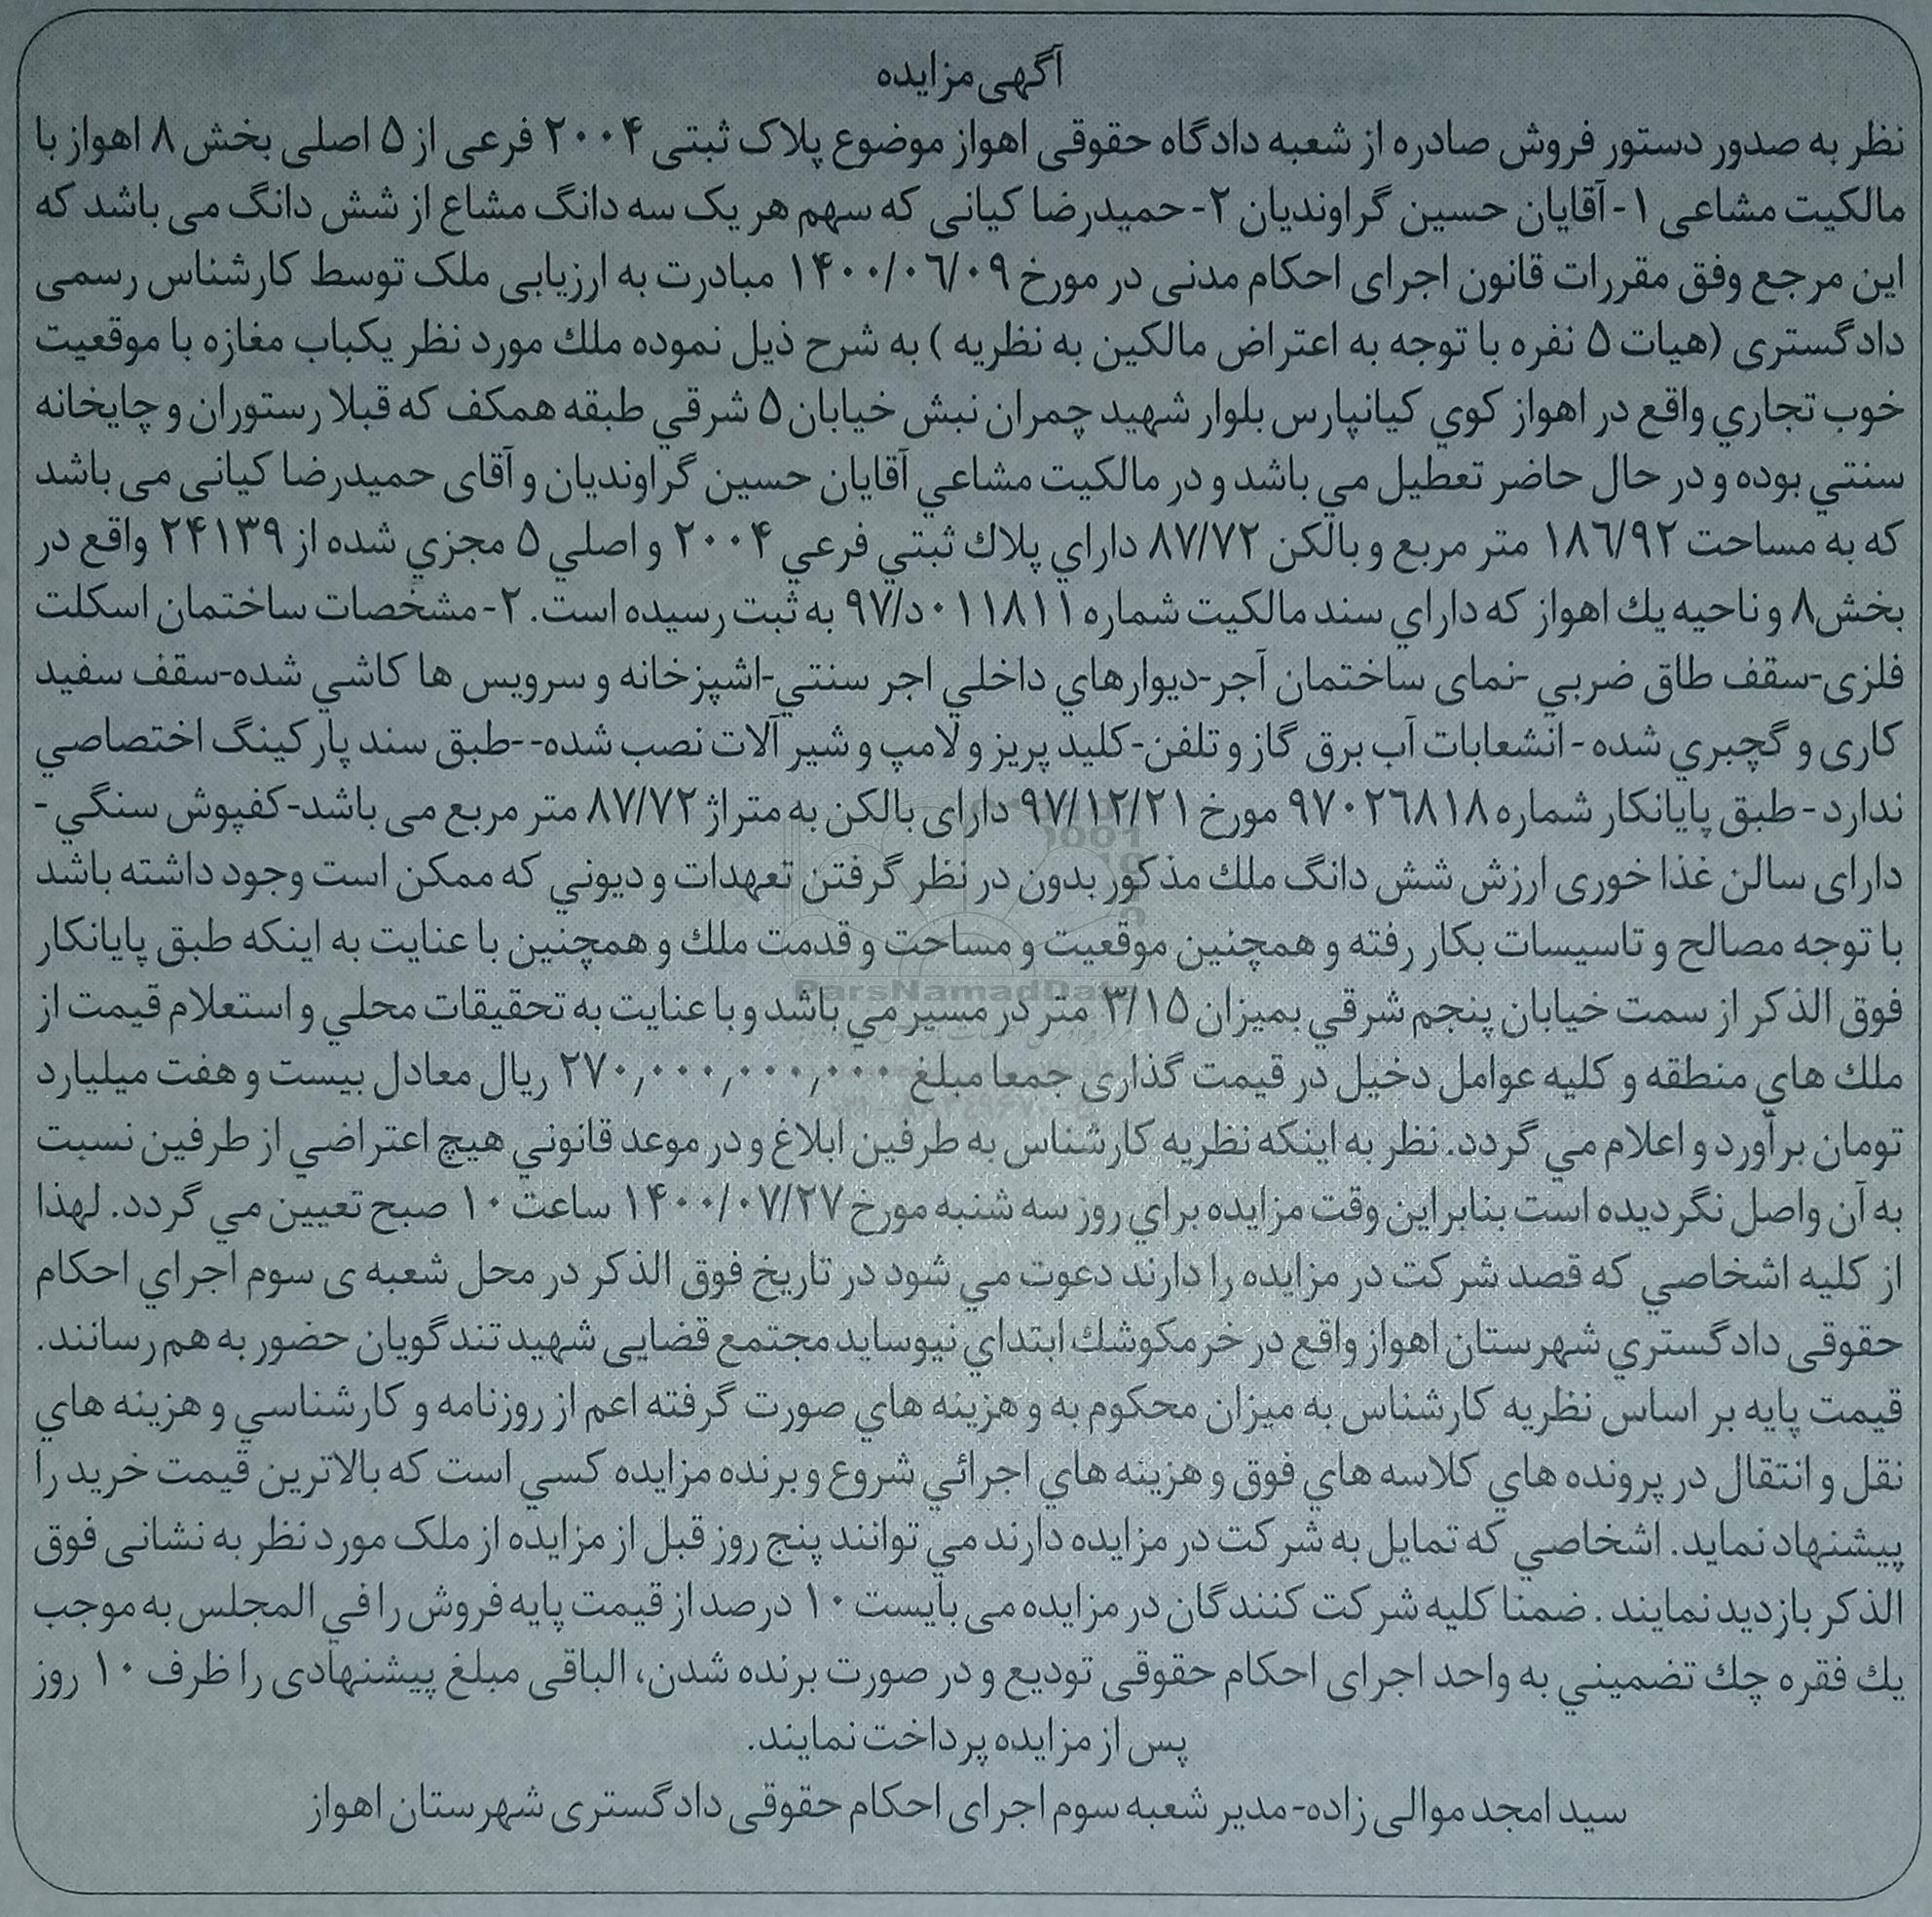 آگهی مزایده
نظر به صدور دستور فروش صادره از شعبه دادگاه حقوقی اهواز موضوع پلاک ثبتی ۲۰۰۴ فرعی از ۵ اصلی بخش ۸ اهواز با
مالکیت مشاعی ۱- آقایان حسین گراوندیان ۲- حمیدرضا کیانی که سهم هر یک سه دانگ مشاع از شش دانگ می باشد که
این مرجع وفق مقررات قانون اجرای احکام مدنی در مورخ ۱۴۰۰/۰۶/۰۹ مبادرت به ارزیابی ملک توسط کارشناس رسمی
دادگستری (هیات ۵ نفره با توجه به اعتراض مالکین به نظریه ) به شرح ذیل نموده ملك مورد نظر یکباب مغازه با موقعیت
خوب تجاري واقع در اهواز کوي کیانپارس بلوار شهید چمران نبش خیابان ۵ شرقي طبقه همکف که قبلا رستوران و چایخانه
سنتي بوده و در حال حاضر تعطیل مي باشد و در مالکیت مشاعي آقایان حسین گراوندیان و آقای حمیدرضا کیانی می باشد
که به مساحت ۱۸۶/۹۲ متر مربع و بالکن ۸۷/۷۲ داراي پلاك ثبتي فرعي ۲۰۰۴ و اصلي ۵ مجزي شده از ۲۴۱۳۹ واقع در
بخش ۸ و ناحیه یك اهواز که داراي سند مالکیت شماره ۰۱۱۸۱۱د/۹۷ به ثبت رسیده است. ۲- مشخصات ساختمان اسکلت
فلزی-سقف طاق ضربي -نمای ساختمان آجر-دیوارهاي داخلي اجر سنتي-اشپزخانه و سرویس ها کاشي شده-سقف سفید
کاری و گچبري شده - انشعابات آب برق گاز و تلفن-کلید پریز و لامپ و شیر آلات نصب شده- -طبق سند پارکینگ اختصاصي
ندارد - طبق پایانکار شماره ۹۷۰۲۶۸۱۸ مورخ ۹۷/۱۲/۲۱ دارای بالکن به متراژ ۸۷/۷۲ متر مربع می باشد-کفپوش سنگي -
دارای سالن غذا خوری ارزش شش دانگ ملك مذکور بدون در نظر گرفتن تعهدات و دیوني که ممکن است وجود داشته باشد
با توجه مصالح و تاسیسات بکار رفته و همچنین موقعیت و مساحت و قدمت ملك و همچنین با عنایت به اینکه طبق پایانکار
فوق الذکر از سمت خیابان پنجم شرقي بمیزان ۳/۱۵ متر در مسیر مي باشد و با عنایت به تحقیقات محلي و استعلام قیمت از
ملك هاي منطقه و کلیه عوامل دخیل در قیمت گذاری جمعا مبلغ ۲۷۰,۰۰۰,۰۰۰,۰۰۰ ریال معادل بیست و هفت میلیارد
تومان برآورد و اعلام مي گردد. نظر به اینکه نظریه کارشناس به طرفین ابلاغ و در موعد قانوني هیچ اعتراضي از طرفین نسبت
به آن واصل نگردیده است بنابراین وقت مزایده براي روز سه شنبه مورخ ۱۴۰۰/۰۷/۲۷ ساعت ۱۰ صبح تعیین مي گردد. لهذا
از کلیه اشخاصي که قصد شرکت در مزایده را دارند دعوت مي شود در تاریخ فوق الذکر در محل شعبه ی سوم اجراي احکام
حقوقی دادگستري شهرستان اهواز واقع در خرمکوشك ابتداي نیوساید مجتمع قضایی شهید تندگویان حضور به هم رسانند.
قیمت پایه بر اساس نظریه کارشناس به میزان محکوم به و هزینه هاي صورت گرفته اعم از روزنامه و کارشناسي و هزینه هاي
نقل و انتقال در پرونده هاي کلاسه هاي فوق و هزینه هاي اجرائي شروع و برنده مزایده کسي است که بالاترین قیمت خرید را
پیشنهاد نماید. اشخاصي که تمایل به شرکت در مزایده دارند مي توانند پنج روز قبل از مزایده از ملک مورد نظر به نشانی فوق
الذکر بازدید نمایند . ضمنا کلیه شرکت کنندگان در مزایده می بایست ۱۰ درصد از قیمت پایه فروش را في المجلس به موجب
یك فقره چك تضمیني به واحد اجرای احکام حقوقی تودیع و در صورت برنده شدن، الباقی مبلغ پیشنهادی را ظرف ۱۰ روز
پس از مزایده پرداخت نمایند.
سید امجد موالی زاده-مدیر شعبه سوم اجرای احکام حقوقی دادگستری شهرستان اهواز
ParsNamadData